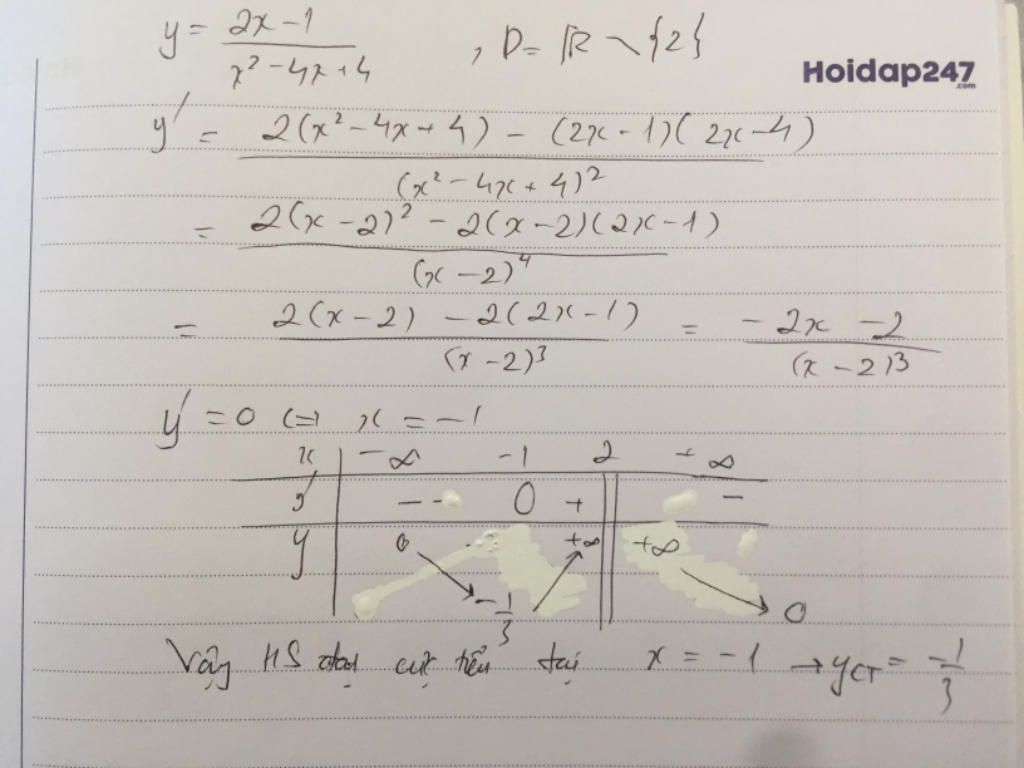 y = (2x - 1)/(x² - 4x + 4) , D = ℝ \ {2}
Hoidap247
.com
y' = (2(x² - 4x + 4) - (2x - 1)(2x - 4))/(x² - 4x + 4)²
= (2(x - 2)² - 2(x - 2)(2x - 1))/(x - 2)⁴
= (2(x - 2) - 2(2x - 1))/(x - 2)³ = (-2x - 2)/(x - 2)³
y' = 0 (=) x = -1
x | -∞ -1 2 +∞
y' | - - 0 + || -
y | 0 +∞ || +∞
-1/3 0
Vậy HS đạt cực tiểu tại x = -1 → yCT = -1/3